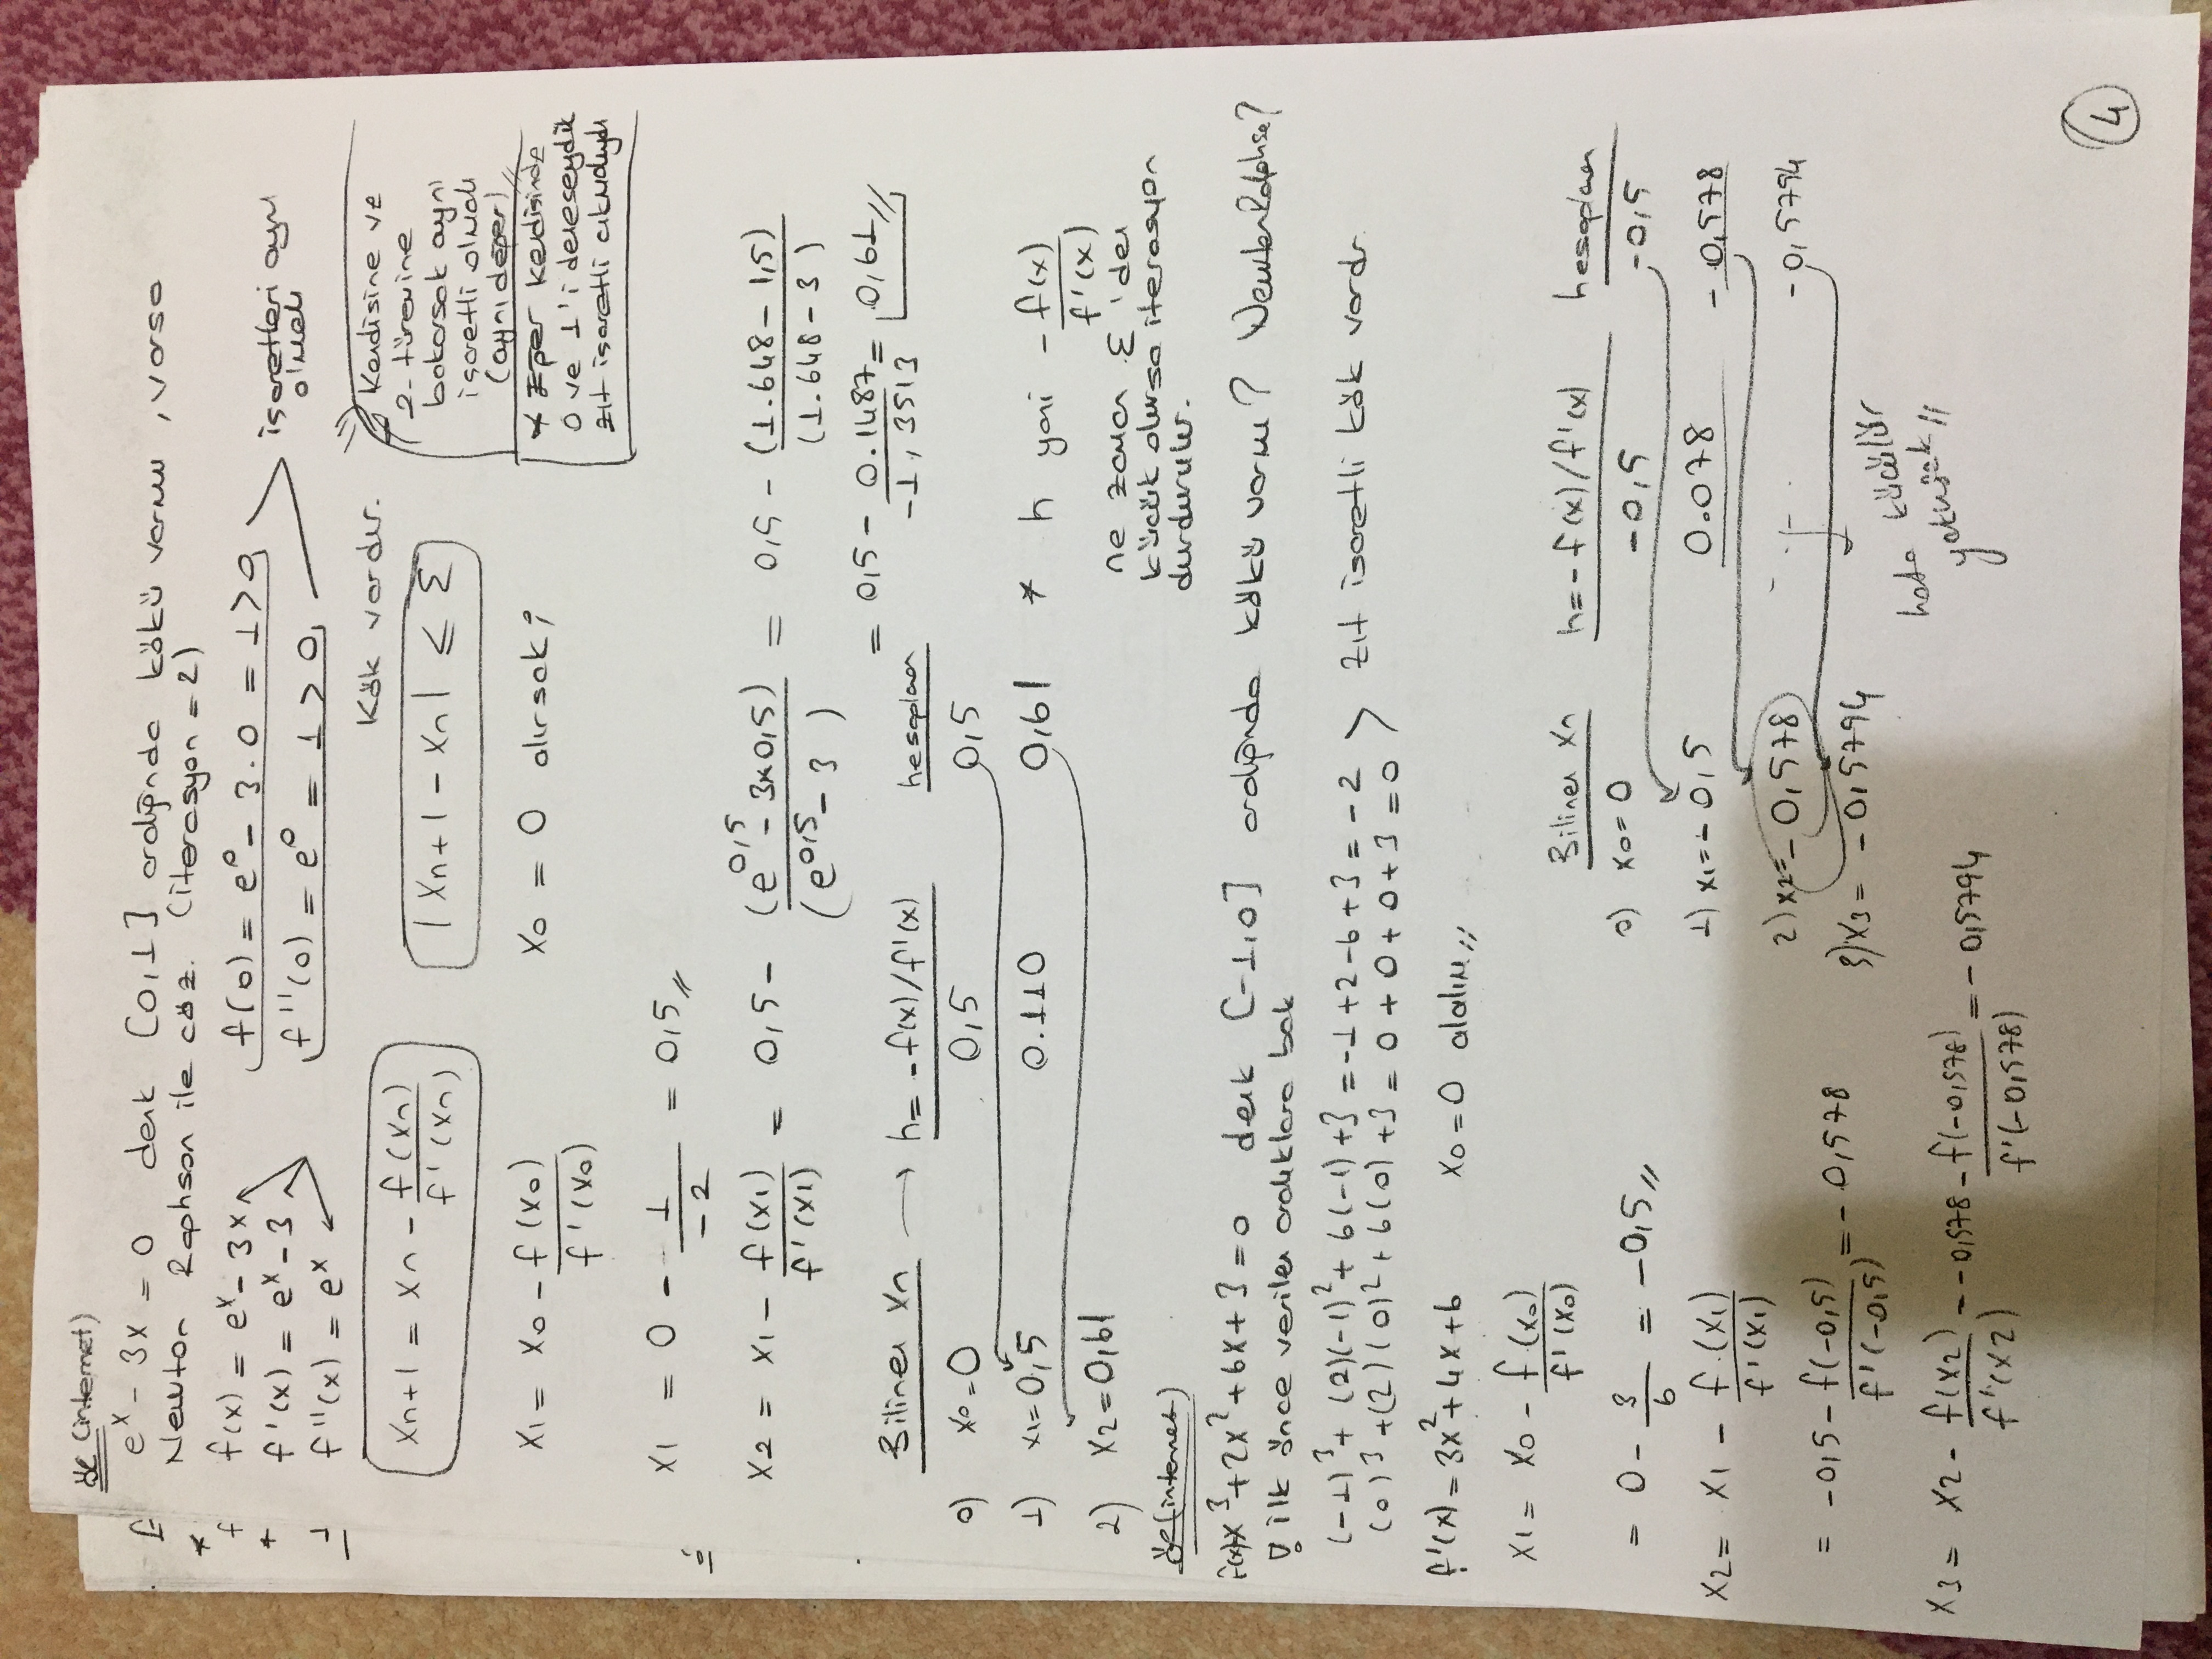 ör (internet)
e^x - 3x = 0 denk [0,1] aralığında kökü varmı, varsa
Newton Raphson ile çöz. (iterasyon = 2)
f(x) = e^x - 3x
f'(x) = e^x - 3
f''(x) = e^x
f(0) = e^0 - 3.0 = 1 > 0
f''(0) = e^0 = 1 > 0
işaretleri aynı
olmalı
Kök vardır.
Xn+1 = Xn - f(Xn) / f'(Xn)
|Xn+1 - Xn| ≤ Ɛ
Kendisine ve
2. türevine
bakarsak aynı
işaretli olmalı
(aynı değer)
* Eğer kendisinde
0 ve 1'i deneseydik
zıt işaretli çıkmalıydı
X1 = X0 - f(X0) / f'(X0)
X0 = 0 alırsak;
X1 = 0 - 1 / -2 = 0,5
X2 = X1 - f(X1) / f'(X1) = 0,5 - (e^0,5 - 3x0,5) / (e^0,5 - 3) = 0,5 - (1.648 - 1,5) / (1.648 - 3)
= 0,5 - 0.1487 / -1,3513 = 0,61
Bilinen Xn → h = -f(x)/f'(x) hesaplanan
0) X0 = 0 0,5 0,5
1) X1 = 0,5 0.110 0,61
2) X2 = 0,61
* h yani - f(x) / f'(x)
ne zaman Ɛ 'den
küçük olursa iterasyon
durdurulur.
ör (internet)
f(x)=x^3 + 2x^2 + 6x + 3 = 0 denk [-1,0] aralığında kökü varmı? Newton Raphson?
! ilk önce verilen aralıklara bak
(-1)^3 + (2)(-1)^2 + 6(-1) + 3 = -1 + 2 - 6 + 3 = -2
(0)^3 + (2)(0)^2 + 6(0) + 3 = 0 + 0 + 0 + 3 = 0
zıt işaretli kök vardır
f'(x) = 3x^2 + 4x + 6 X0 = 0 alalım
X1 = X0 - f(X0) / f'(X0)
= 0 - 3 / 6 = -0,5
X2 = X1 - f(X1) / f'(X1)
= -0,5 - f(-0,5) / f'(-0,5) = -0,578
X3 = X2 - f(X2) / f'(X2) = -0,578 - f(-0,578) / f'(-0,578) = -0,5794
Bilinen Xn h = -f(x)/f'(x) hesaplanan
0) X0 = 0 -0,5 -0,5
1) X1 = -0,5 0.078 -0,578
2) X2 = -0,578 -0,5794
3) X3 = -0,5794
hata küçülür
4